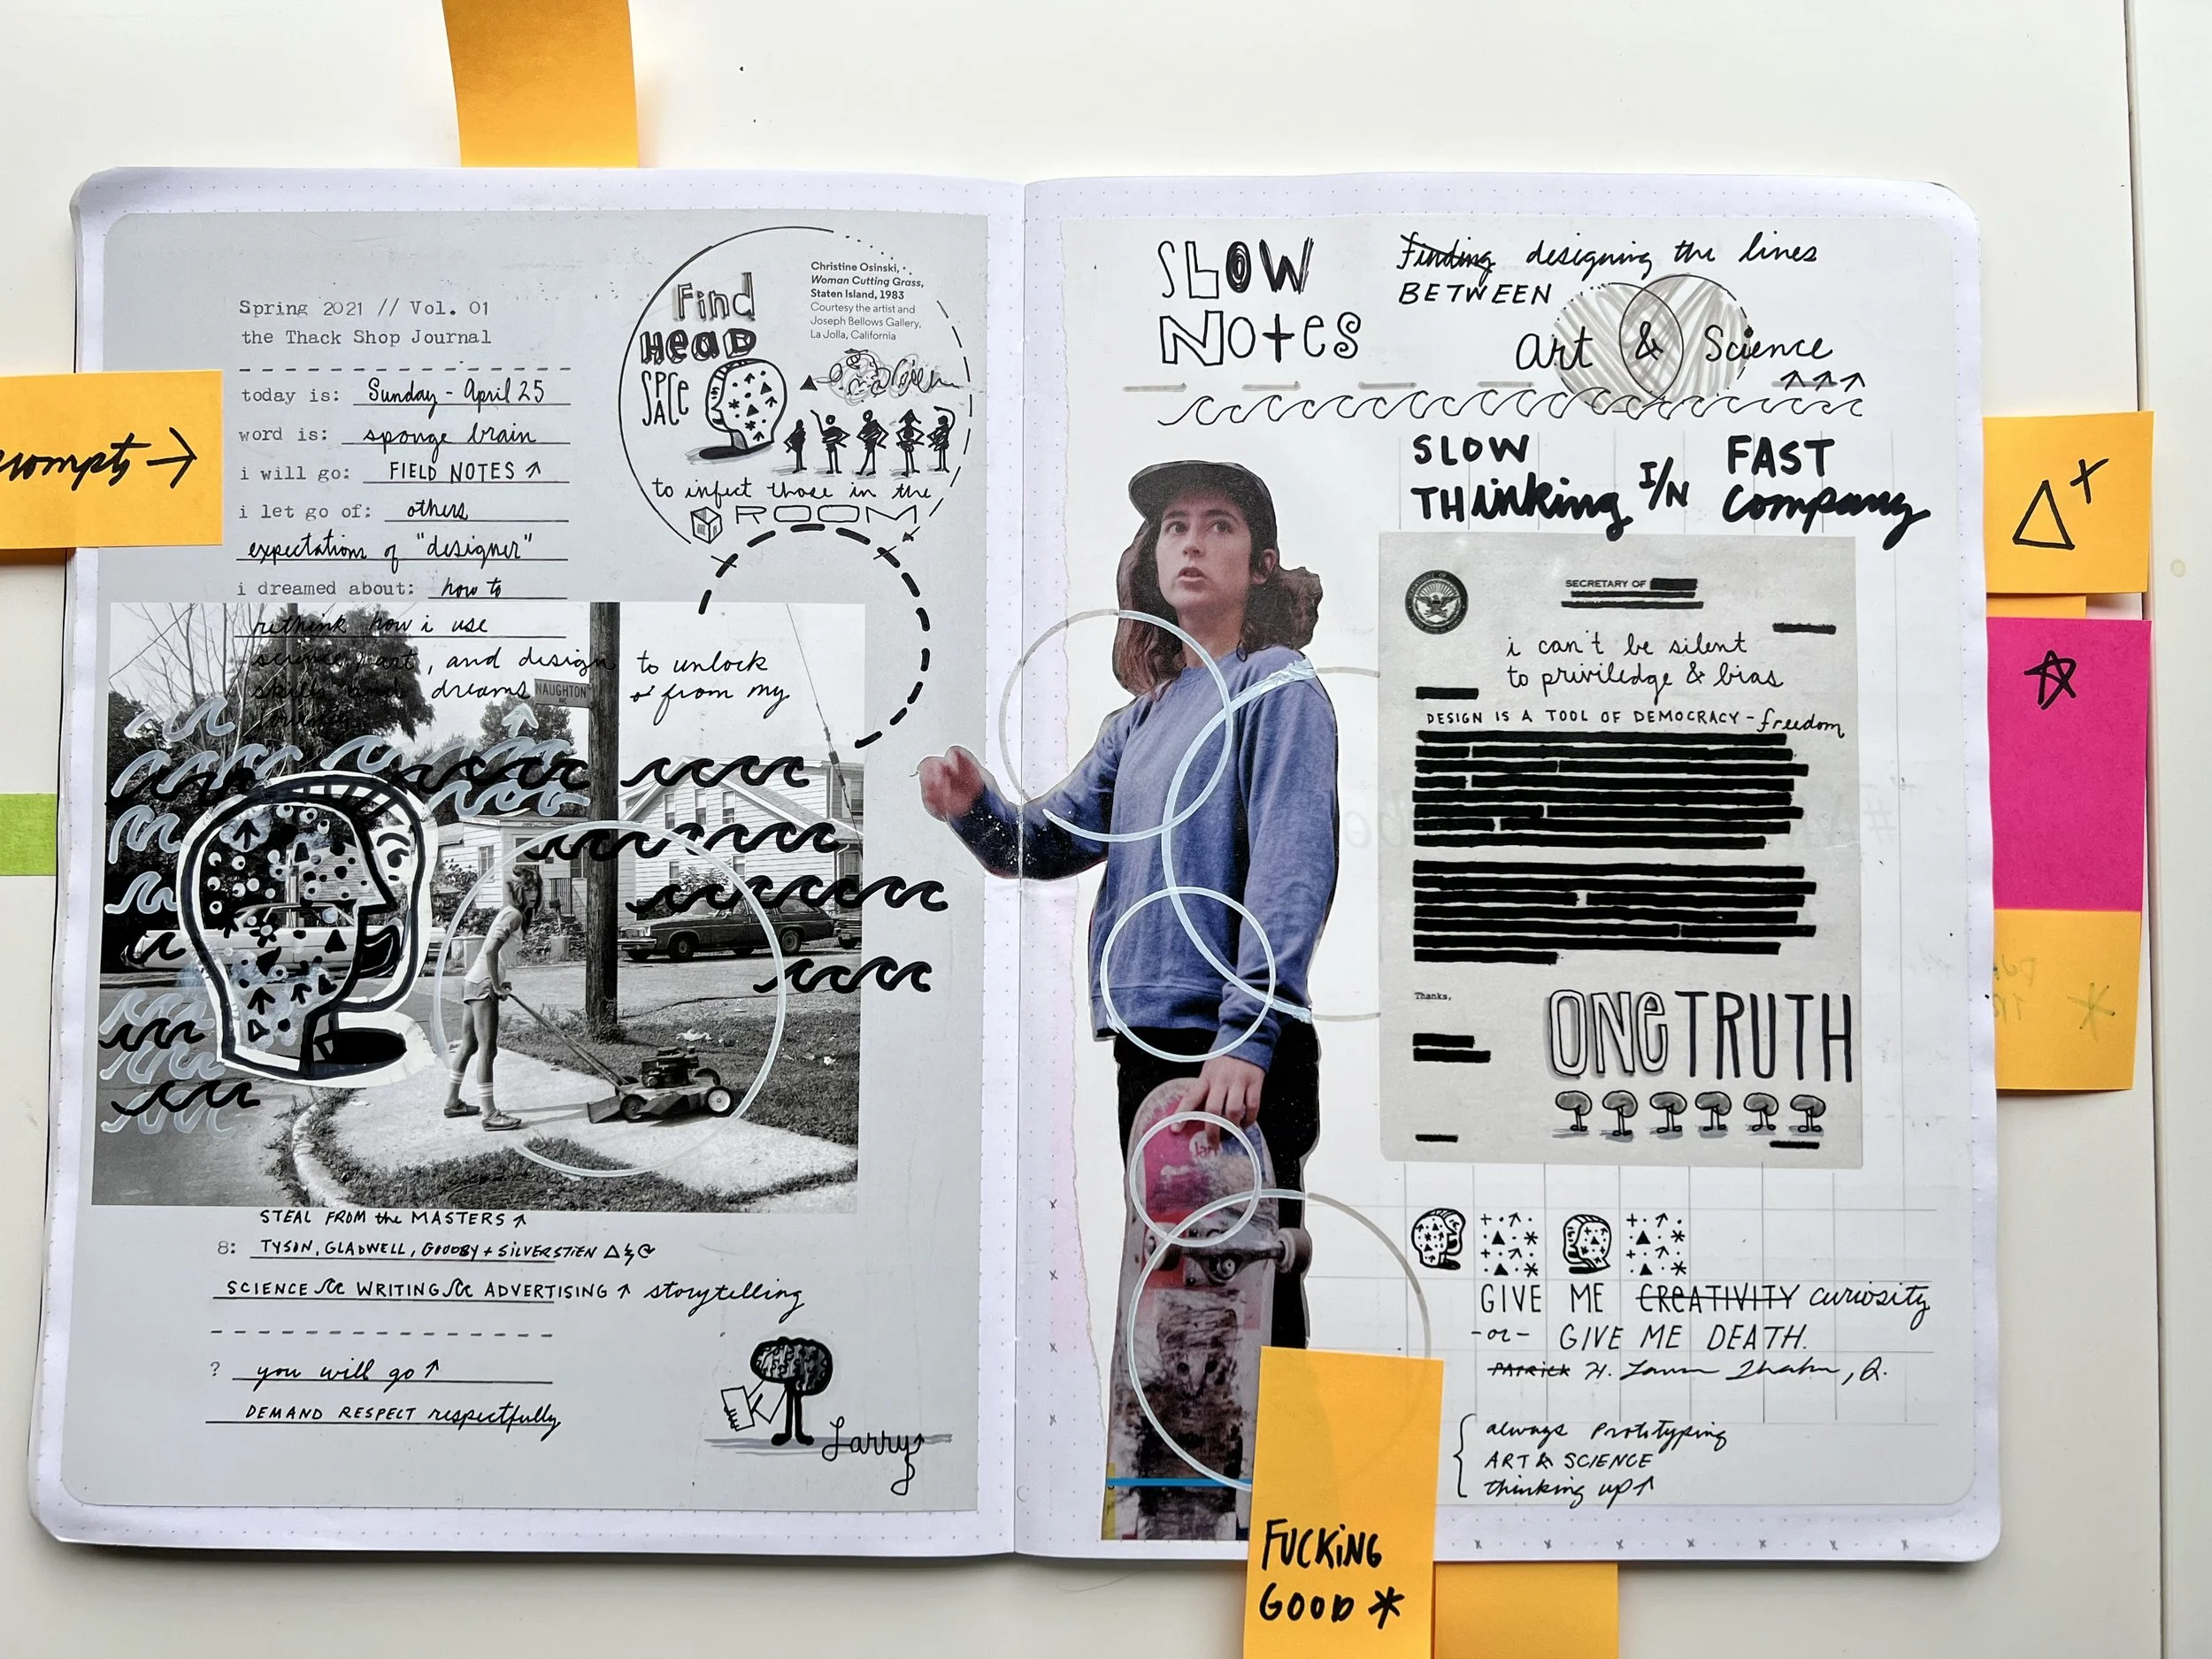 rompts →
Spring 2021 // Vol. 01
the Thack Shop Journal
today is: Sunday - April 25
word is: sponge brain
i will go: FIELD NOTES ↑
i let go of: others
expectations of "designer"
i dreamed about: how to
rethink how i use
science, art, and design to unlock
skills and dreams or from my
NAUGHTON
Find
HEAD
SPACE
Christine Osinski,
Woman Cutting Grass,
Staten Island, 1983
Courtesy the artist and
Joseph Bellows Gallery,
La Jolla, California
to infect those in the
ROOM
STEAL FROM the MASTERS ↑
8: TYSON, GLADWELL, GOODBY + SILVERSTIEN
SCIENCE WRITING ADVERTISING ↑ storytelling
? you will go ↑
DEMAND RESPECT respectfully
Larry
SLOW
NOTES
Finding designing the lines
BETWEEN
Art & Science
SLOW
THinking I/N FAST
Company
SECRETARY OF
i can't be silent
to priviledge & bias
DESIGN IS A TOOL OF DEMOCRACY - freedom
Thanks,
ONE TRUTH
GIVE ME CREATIVITY curiosity
-or- GIVE ME DEATH.
PATRICK H.
always Prototyping
ART & SCIENCE
thinking up ↑
FUCKING
GOOD *